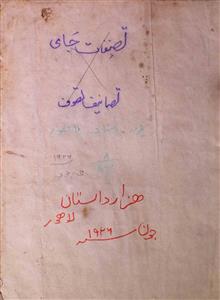 تصنیفات جامی
تصانیف تصوف
۱۹۲۶
ہزار داستان
لاہور
جون سنہ ۱۹۲۶